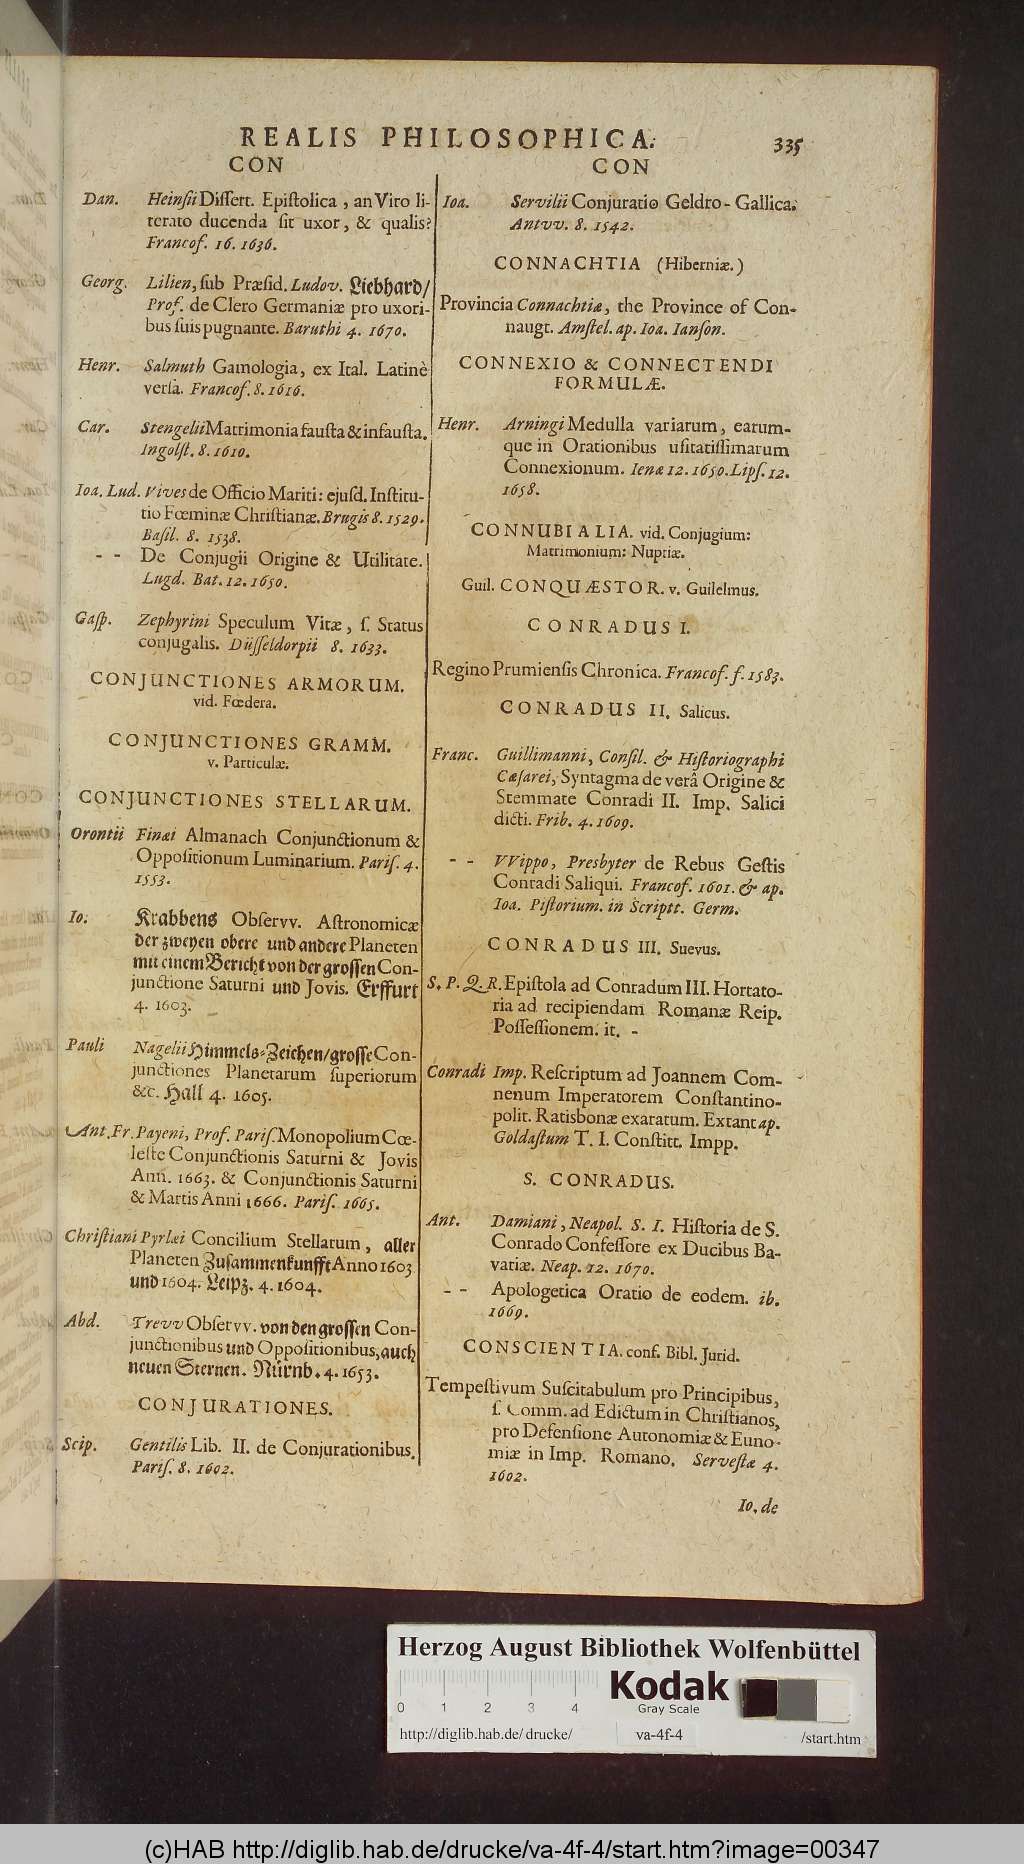 REALIS PHILOSOPHICA. 335
CON
Dan. Heinſii Diſſert. Epiſtolica, an Viro li-
terato ducenda ſit uxor, & qualis?
Francof. 16. 1636.
Georg. Lilien, ſub Præſid. Ludov. Liebhard/
Prof. de Clero Germaniæ pro uxori-
bus ſuis pugnante. Baruthi 4. 1670.
Henr. Salmuth Gamologia, ex Ital. Latinè
verſa. Francof. 8. 1616.
Car. Stengelii Matrimonia fauſta & infauſta.
Ingolſt. 8. 1610.
Ioa. Lud. Vives de Officio Mariti: ejuſd. Inſtitu-
tio Fœminæ Chriſtianæ. Brugis 8. 1529.
Baſil. 8. 1538.
- - De Conjugii Origine & Utilitate.
Lugd. Bat. 12. 1650.
Gaſp. Zephyrini Speculum Vitæ, ſ. Status
conjugalis. Düſſeldorpii 8. 1633.
CONJUNCTIONES ARMORUM.
vid. Fœdera.
CONJUNCTIONES GRAMM.
v. Particulæ.
CONJUNCTIONES STELLARUM.
Orontii Finæi Almanach Conjunctionum &
Oppoſitionum Luminarium. Pariſ. 4.
1553.
Io. Krabbens Obſervv. Aſtronomicæ
der zweyen obere und andere Planeten
mit einem Bericht von der groſſen Con-
junctione Saturni und Jovis. Erffurt
4. 1603.
Pauli Nagelii Himmels-Zeichen/ groſſe Con-
junctiones Planetarum ſuperiorum
&c. Hall 4. 1605.
Ant. Fr. Payeni, Prof. Pariſ. Monopolium Cœ-
leſte Conjunctionis Saturni & Jovis
Ann. 1663. & Conjunctionis Saturni
& Martis Anni 1666. Pariſ. 1665.
Chriſtiani Pyrlæi Concilium Stellarum, aller
Planeten Zuſammenkunfft Anno 1603
und 1604. Leipz. 4. 1604.
Abd. Trevv Obſervv. von den groſſen Con-
junctionibus und Oppoſitionibus, auch
neuen Sternen. Nürnb. 4. 1653.
CONJURATIONES.
Scip. Gentilis Lib. II. de Conjurationibus.
Pariſ. 8. 1602.
CON
Ioa. Servilii Conjuratio Geldro-Gallica.
Antvv. 8. 1542.
CONNACHTIA (Hiberniæ.)
Provincia Connachtiæ, the Province of Con-
naugt. Amſtel. ap. Ioa. Ianſon.
CONNEXIO & CONNECTENDI
FORMULÆ.
Henr. Arningi Medulla variarum, earum-
que in Orationibus uſitatiſſimarum
Connexionum. Ienæ 12. 1650. Lipſ. 12.
1658.
CONNUBIALIA. vid. Conjugium:
Matrimonium: Nuptiæ.
Guil. CONQUÆSTOR. v. Guilelmus.
CONRADUS I.
Regino Prumienſis Chronica. Francof. f. 1583.
CONRADUS II. Salicus.
Franc. Guillimanni, Conſil. & Hiſtoriographi
Cæſarei, Syntagma de verâ Origine &
Stemmate Conradi II. Imp. Salici
dicti. Frib. 4. 1609.
- - VVippo, Presbyter de Rebus Geſtis
Conradi Saliqui. Francof. 1601. & ap.
Ioa. Piſtorium. in Scriptt. Germ.
CONRADUS III. Suevus.
S. P. Q. R. Epiſtola ad Conradum III. Hortato-
ria ad recipiendam Romanæ Reip.
Poſſeſſionem. it. -
Conradi Imp. Reſcriptum ad Joannem Com-
nenum Imperatorem Conſtantino-
polit. Ratisbonæ exaratum. Extant ap.
Goldaſtum T. I. Conſtitt. Impp.
S. CONRADUS.
Ant. Damiani, Neapol. S. I. Hiſtoria de S.
Conrado Confeſſore ex Ducibus Ba-
variæ. Neap. 12. 1670.
- - Apologetica Oratio de eodem. ib.
1669.
CONSCIENTIA. conf. Bibl. Jurid.
Tempeſtivum Suſcitabulum pro Principibus,
ſ. Comm. ad Edictum in Chriſtianos,
pro Defenſione Autonomiæ & Euno-
miæ in Imp. Romano. Serveſtæ 4.
1602.
Io. de
Herzog August Bibliothek Wolfenbüttel
0 1 2 3 4
Kodak
Gray Scale
http://diglib.hab.de/drucke/ va-4f-4 /start.htm
(c)HAB http://diglib.hab.de/drucke/va-4f-4/start.htm?image=00347